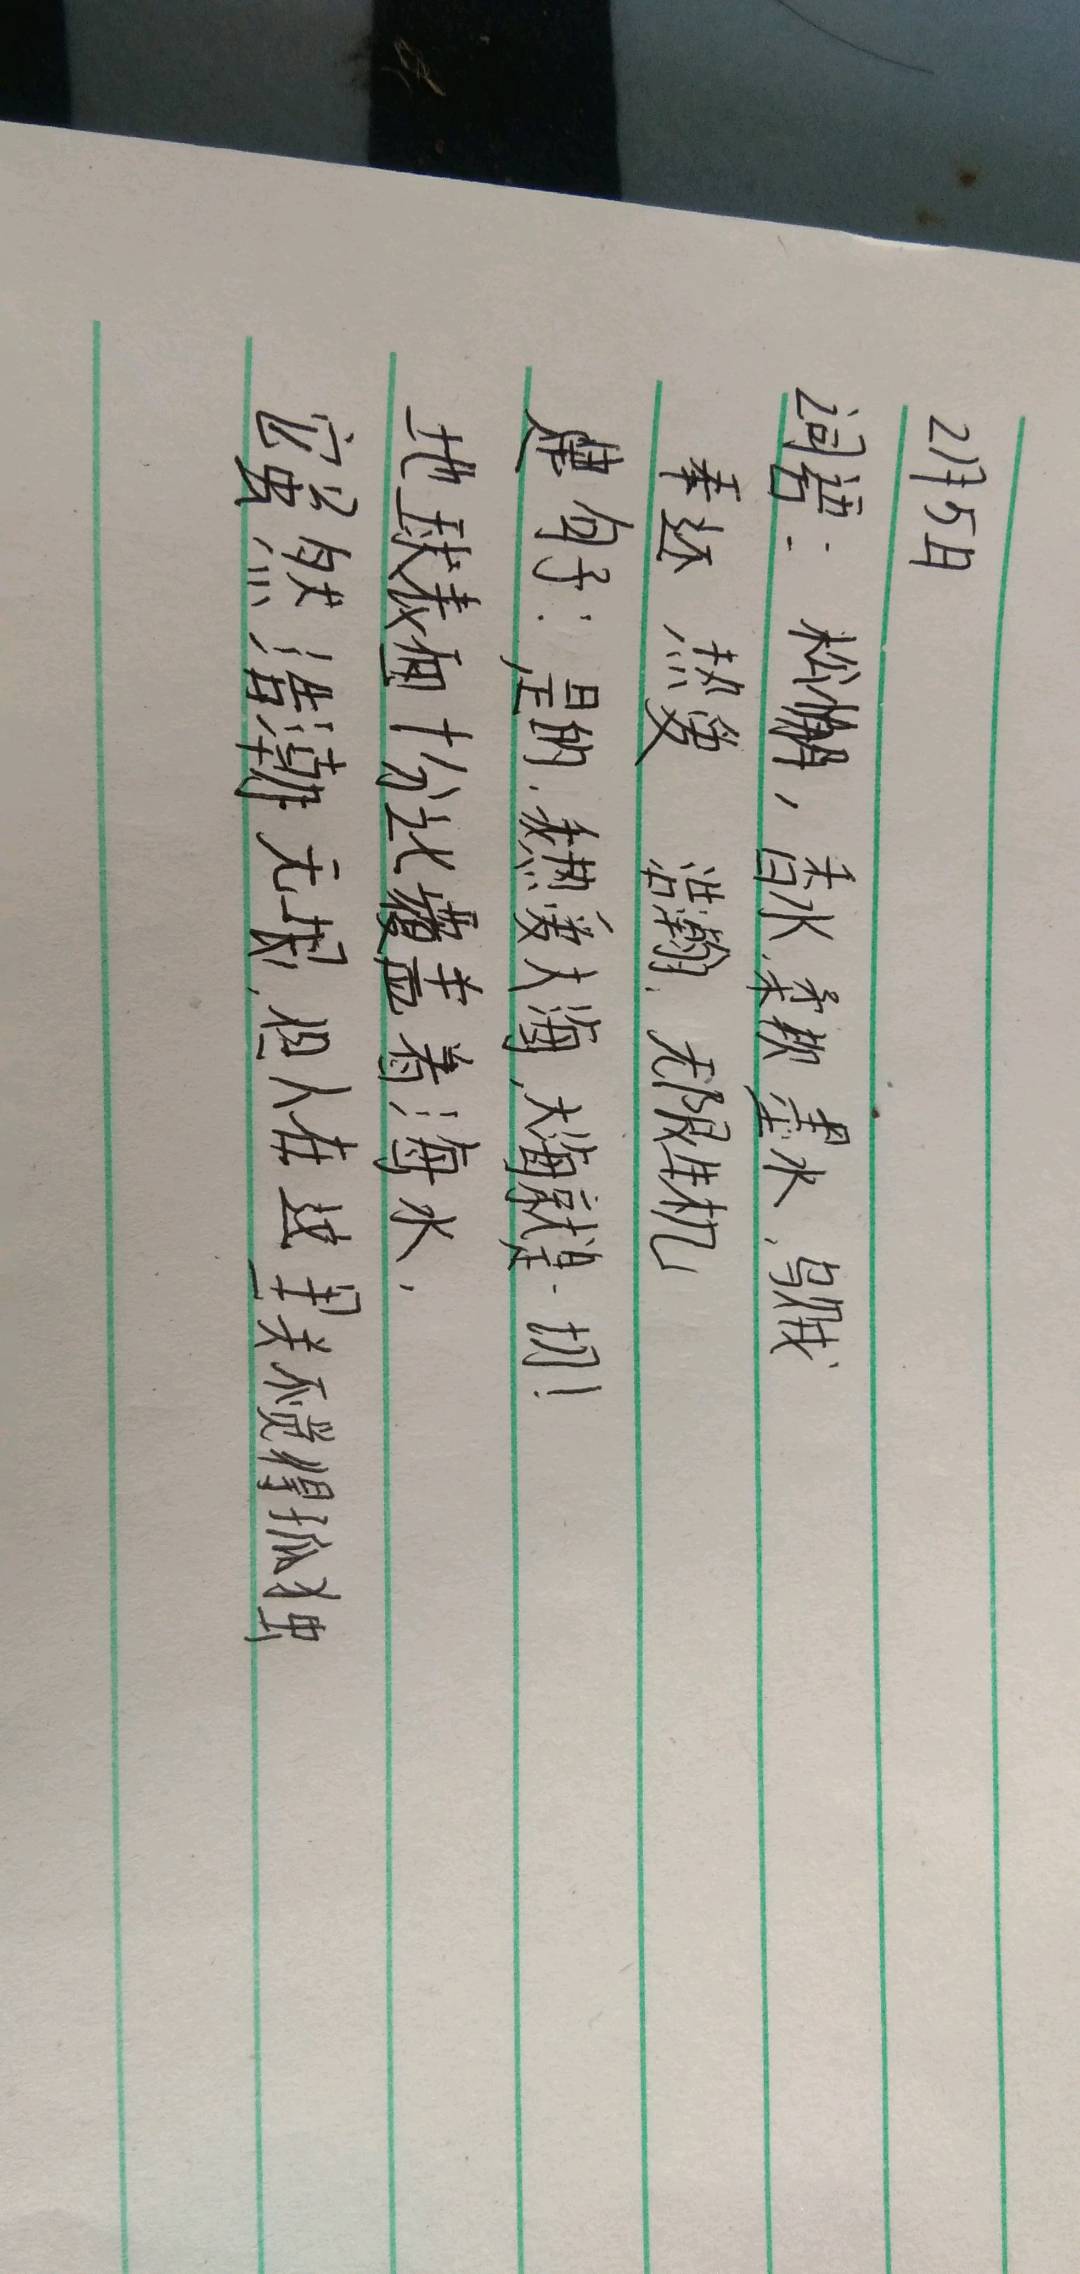 2月5日
词语：松懈，香水、柔软 墨水、乌贼
奉还 热爱 浩瀚、无限生机
句子：是的、我热爱大海，大海就是一切！
地球表面十分之 覆盖着海水，
它虽然浩瀚无垠，但人在这里并不觉得孤独